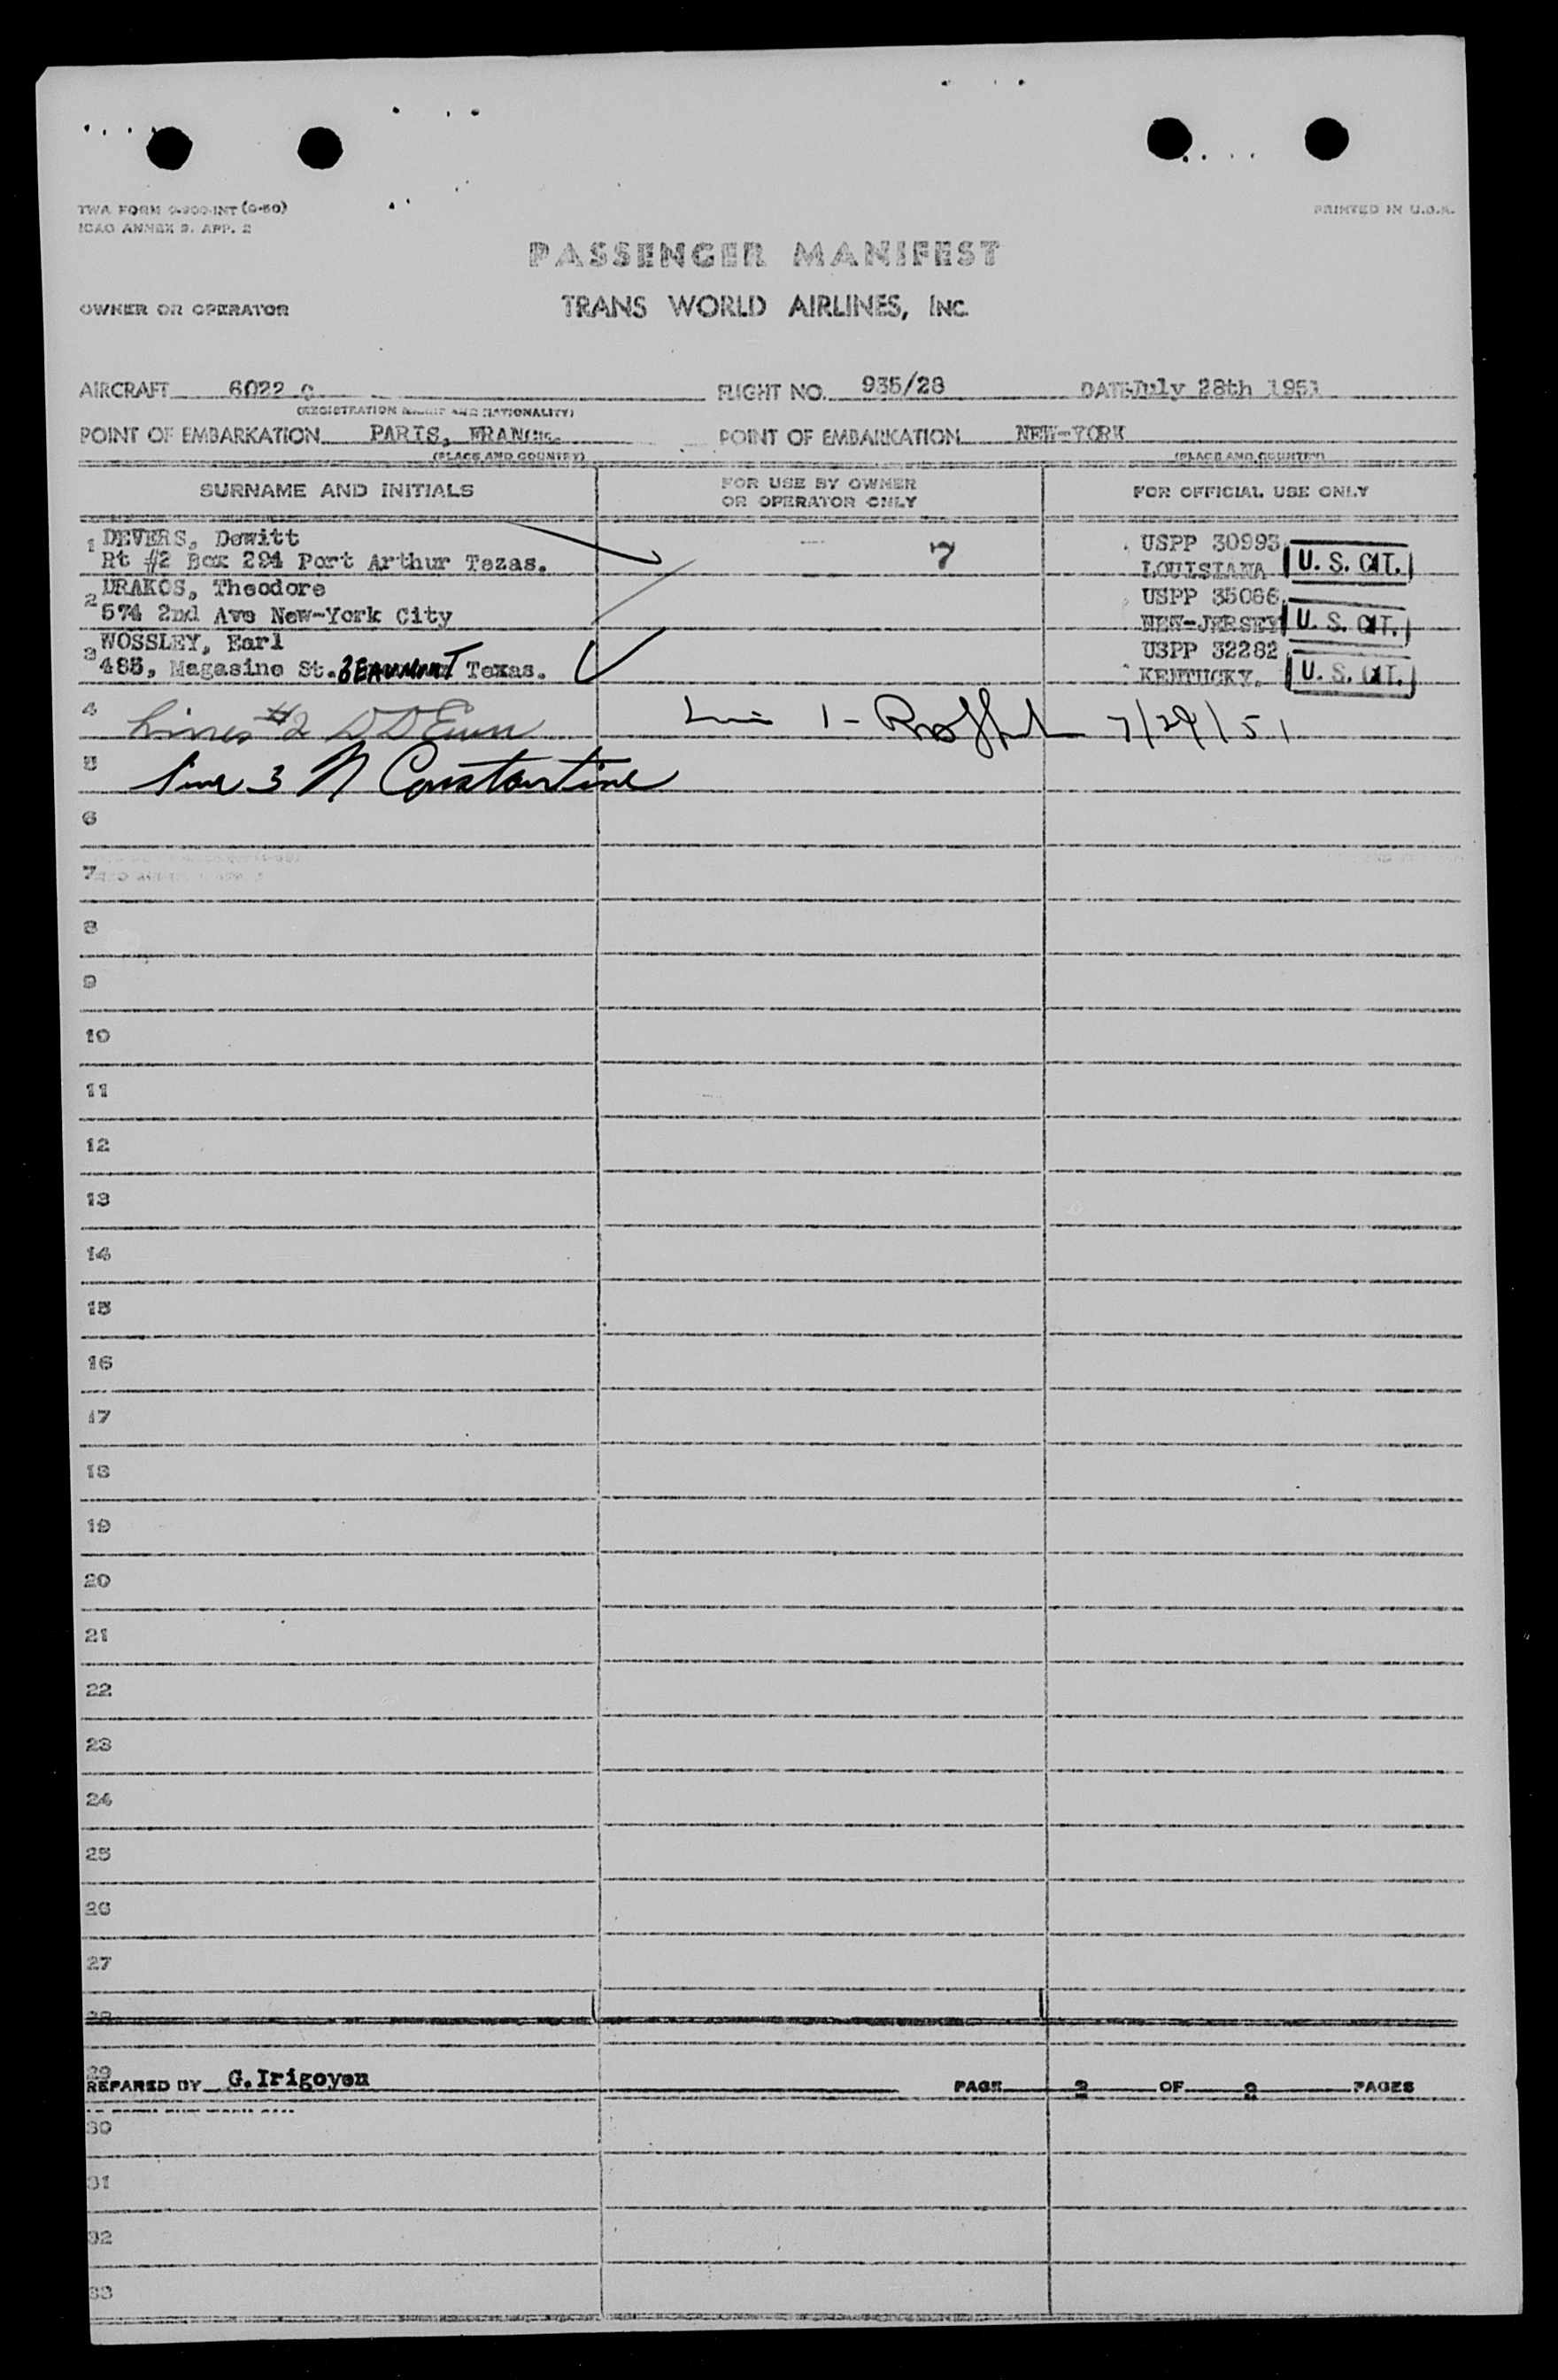 TWA FORM 0-900-INT (9-50)
ICAO ANNEX 9, APP. 2
PRINTED IN U.S.A.
PASSENGER MANIFEST
OWNER OR OPERATOR
TRANS WORLD AIRLINES, INC
AIRCRAFT 6022 C FLIGHT NO. 935/28 DATE July 28th 1951
(REGISTRATION MARKS AND NATIONALITY)
POINT OF EMBARKATION PARIS, FRANCE. POINT OF EMBARKATION NEW-YORK
(PLACE AND COUNTRY) (PLACE AND COUNTRY)
SURNAME AND INITIALS FOR USE BY OWNER OR OPERATOR ONLY FOR OFFICIAL USE ONLY
1 DEVERS, Dewitt USPP 30993
Rt #2 Box 294 Port Arthur Tezas. 7 LOUISIANA U. S. CIT.
2 DRAKOS, Theodore USPP 35086
574 2nd Ave New-York City NEW-JERSEY U. S. CIT.
3 WOSSLEY, Earl USPP 32282
485, Magasine St. BEAUMONT Texas. KENTUCKY. U. S. CIT.
4 Lines #2 1 - 7/29/51
5 line 3 N Constantine
6
7
8
9
10
11
12
13
14
15
16
17
18
19
20
21
22
23
24
25
26
27
28
29
REPARED BY G.Irigoyen PAGE 2 OF 2 PAGES
30
31
32
33